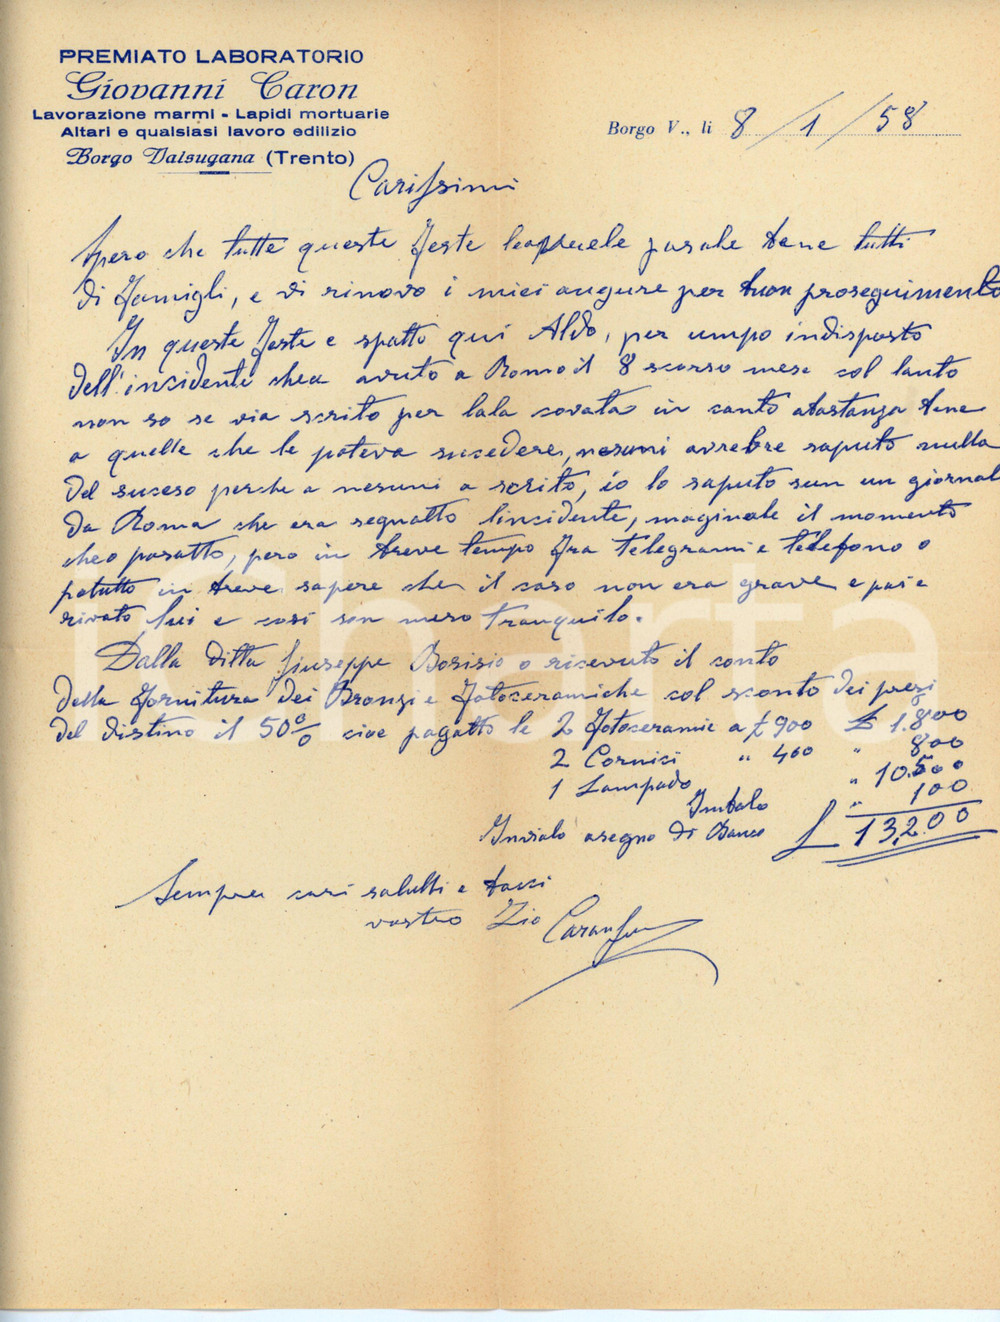 PREMIATO LABORATORIO
Giovanni Caron
Lavorazione marmi - Lapidi mortuarie
Altari e qualsiasi lavoro edilizio
Borgo Valsugana (Trento)
Borgo V., li 8/1/58
Carissimi
Spero che tutte queste feste pasate bene tutti
di famigli, e vi rinovo i miei augure per buon proseguimento
In queste feste e statto qui Aldo, per umpo indisposto
dell'incidente chea avuto a Roma il 8 scorso mese col lauto
non so se via scrito per lala covata in canto abastanza bene
a quelle che le poteva sucedere, nesuni avrebre saputo nulla
del suceso perche a nesuni a scrito, io lo saputo sun un giornal
da Roma che era segnatto lincidente, maginate il momento
cheo pasatto, pero in breve tempo fra telegrami e telefono o
potutto in breve sapere che il caso non era grave e poi e
rivato lui e cosi son meso tranquilo.
Dalla ditta Giuseppe Borisio o ricevuto il conto
della fornitura dei Bronzi e fotoceramiche col sconto dei presi
del distino il 50% cioe pagatto le 2 fotoceramie a £ 900 £ 1.800
2 Cornici " 400 " 800
1 Lampada " 10.500
Imbalo " 100
Inviato asegno di Banco £ 13,200
Sempre cari salutti e bacci
vostro Zio Caron
iCharta